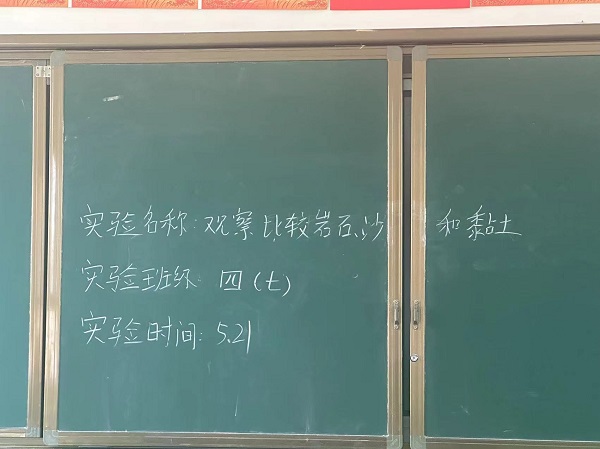 实验名称:观察比较岩石、沙和黏土
实验班级 四(七)
实验时间:5.21